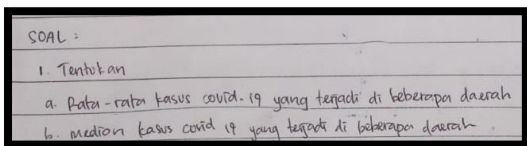 SOAL :
1. Tentukan
a. Rata-rata kasus covid-19 yang terjadi di beberapa daerah
b. median kasus covid 19 yang terjadi di beberapa daerah.